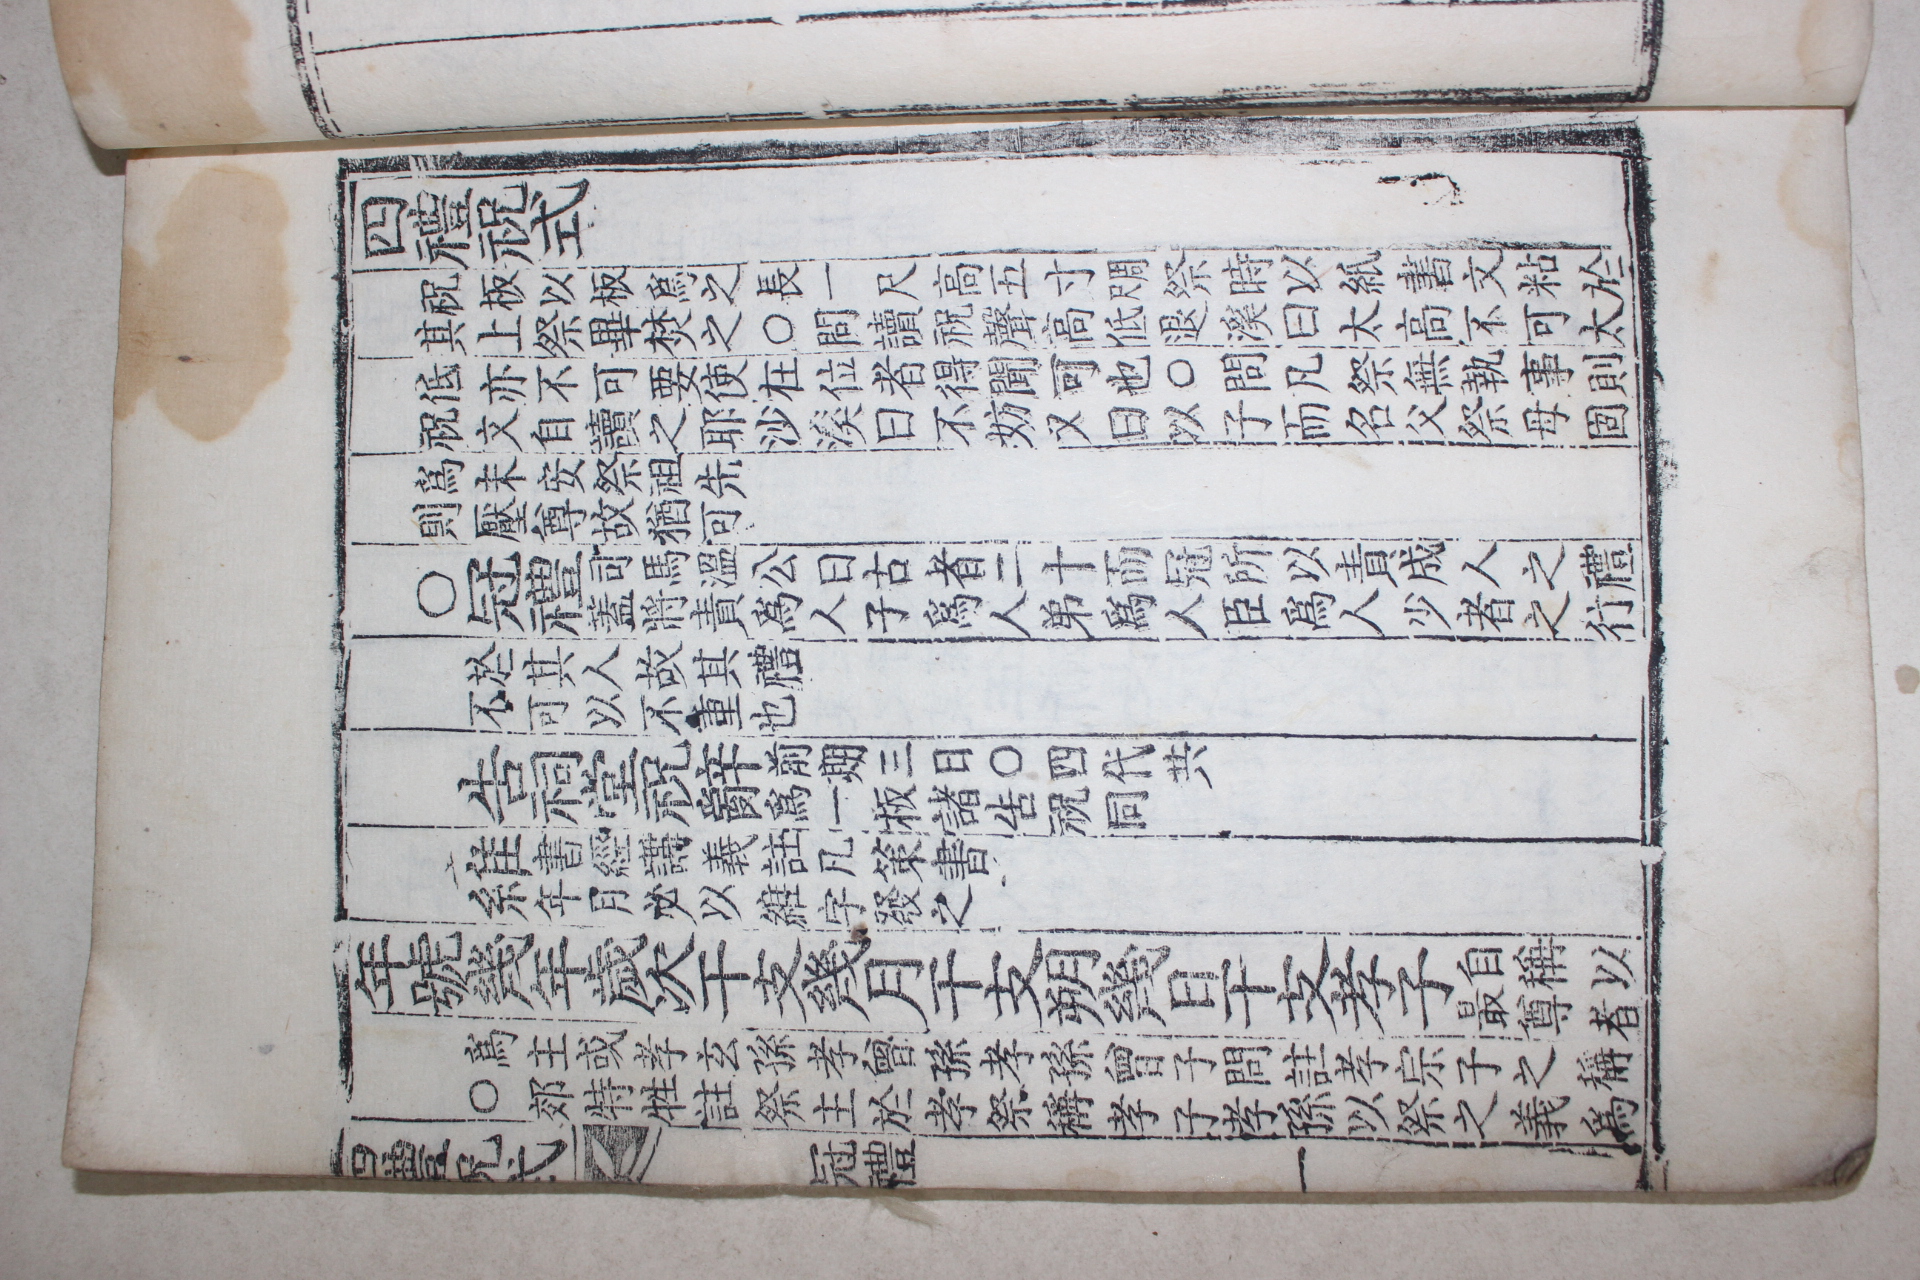 四禮祝式
祝板以板爲之長一尺高五寸周尺祭時以紙書文粘於
其上祭畢焚之○問讀祝聲高低退溪曰太高不可太
低亦不可要使在位者得聞可也○問凡祭無執事則
祝文自讀之耶沙溪曰不妨又曰以子而名父祭母固
爲未安祭祖先
則壓尊故猶可
○冠禮
司馬溫公曰古者二十而冠所以責成人之禮
蓋將責爲人子爲人弟爲人臣爲人少者之行
於其人故其禮
不可以不重也
告祠堂祝辭
前期三日○四代共
爲一板諸告祝同
維
書經講義註凡策書
紀年月必以維字發之
年號幾年歲次干支幾月干支朔幾日干支孝子
自稱以
最尊者
爲主或孝玄孫孝曾孫孝孫曾子問註孝宗子之稱
○郊特牲註祭主於孝祭稱孝子孝孫以祭之義爲
四禮祝式
冠禮
一